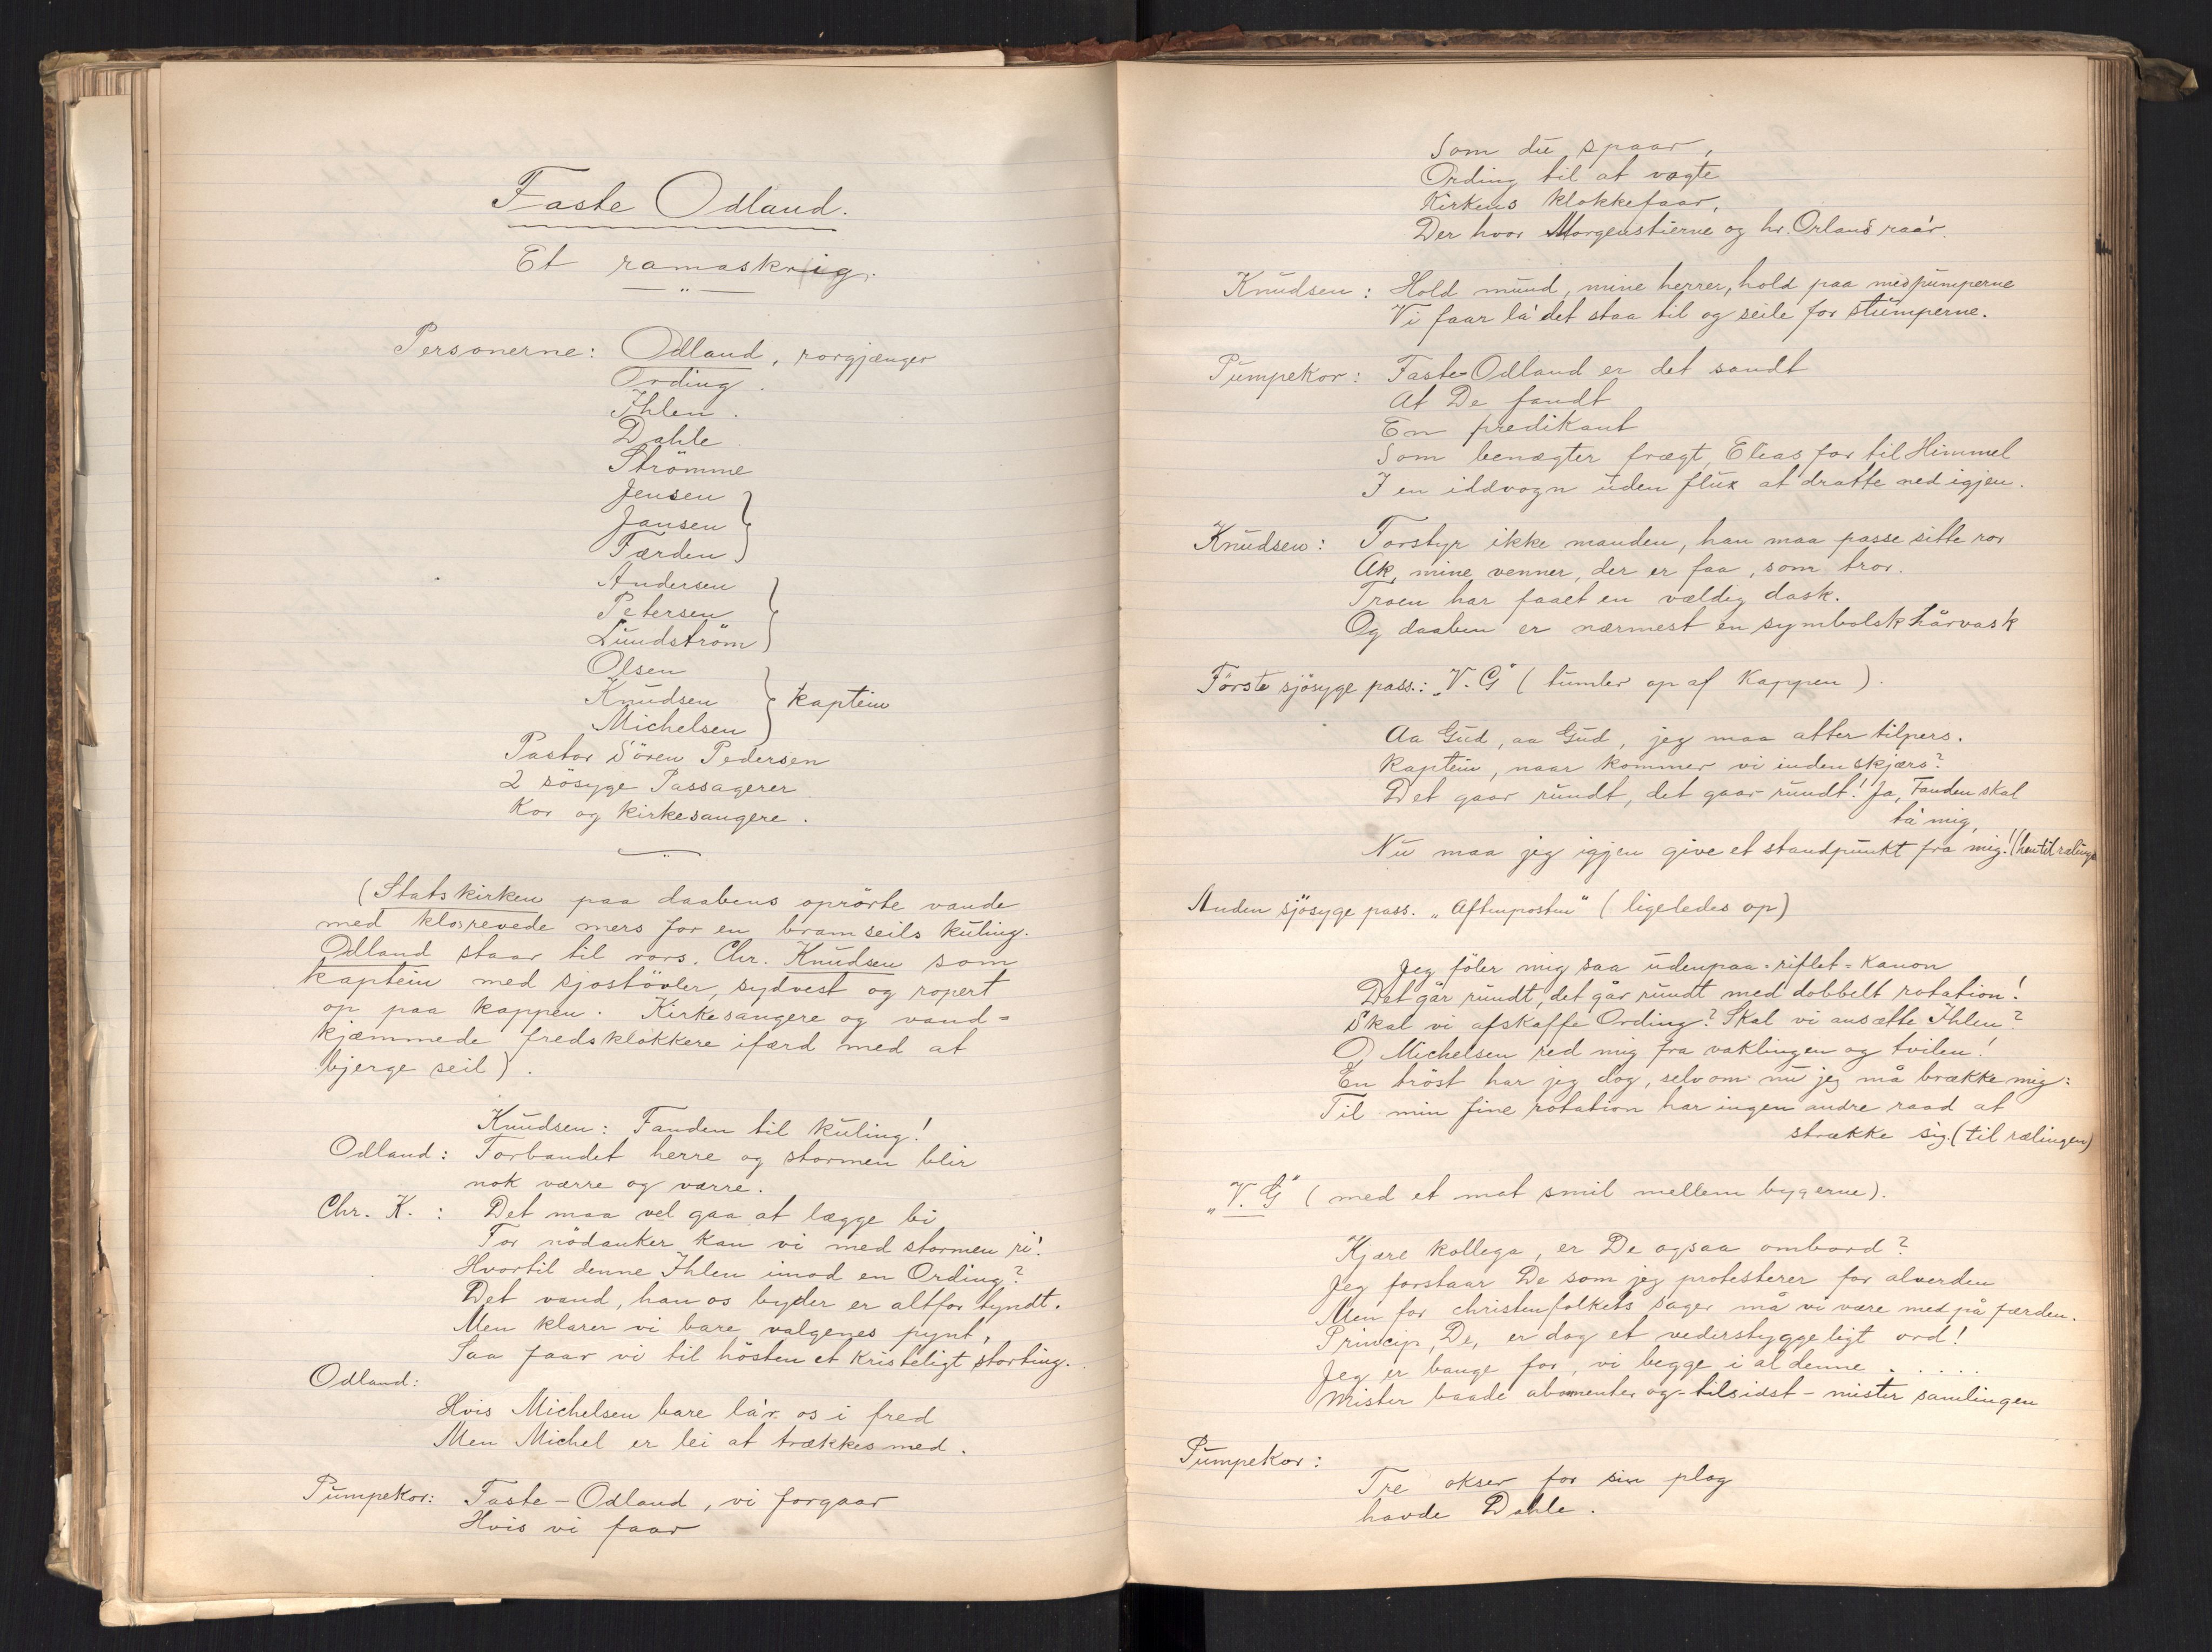 Faste Odland.
Et ramaskrig.
Personerne: Odland, rorgjænger
Ording.
Ihlen.
Dahle
Strömme
Jensen
Jansen
Færden
Andersen
Petersen
Lundström
Olsen
Knudsen } kaptein
Michelsen
Pastor Sören Pedersen
2 sösyge Passagerer.
Kor og kirkesangere.
(Statskirken paa daabens oprörte vande
med klosrevede mers for en bramseils kuling.
Odland staar til rors. Chr. Knudsen som
kaptein med sjostövler, sydvest og ropert
op paa kappen. Kirkesangere og vand=
kjæmmede fredsklokkere ifærd med at
bjerge seil).
Knudsen: Fanden til kuling!
Odland: Forbandet herre og stormen blir
nok værre og værre.
Chr. K.: Det maa vel gaa at lægge bi
For nödanker kan vi med stormen ri!
Hvortil denne Ihlen imod en Ording?
Det vand, han os byder er altfor tyndt.
Men klarer vi bare valgenes pynt,
Saa faar vi til hösten et kristeligt storting.
Odland:
Hvis Michelsen bare la'r os i fred
Men Michel er lei at trækkes med.
Pumpekor: Faste-Odland, vi forgaar
Hvis vi faar
Som du spaar,
Ording til at vogte
Kirkens klokkefaar,
Der hvor Morgenstierne og hr. Orland raa'r.
Knudsen: Hold mund, mine herrer, hold paa med pumperne
Vi faar la' det staa til og seile for stumperne.
Pumpekor: Faste-Odland er det sandt
At De fandt
En predikant
Som benægter frægt, Elias for til Himmel
I en ildvogn uden flux at dratte ned igjen.
Knudsen: Forstyr ikke manden, han maa passe sitte ror
Ak, mine venner, der er faa, som tror.
Troen har faaet en vældig dask.
Og daaben er nærmest en symbolsk hårvask
Förste sjösyge pass.: „V. G" (tumler op af Kappen).
Aa Gud, aa Gud, jeg maa atter tilpers.
Kaptein, naar kommer vi indenskjærs?
Det gaar rundt, det gaar rundt! Ja, Fanden skal
ta' mig,
Nu maa jeg igjen give et standpunkt fra mig! (hen til rælingen
Anden sjösyge pass. „Aftenposten" (ligeledes op)
Jeg föler mig saa udenpaa-riflet=kanon
Det går rundt, det går rundt med dobbelt rotation!
Skal vi afskaffe Ording? Skal vi ansætte Ihlen?
O, Michelsen red mig fra vaklingen og tvilen!
En tröst har jeg dog, selv om nu jeg må brække mig:
Til min fine rotation har ingen andre raad at
strække sig. (til rælingen)
„V. G" (med et mat smil mellem bygerne).
Kjære kollega, er De ogsaa ombord?
Jeg forstaar De som jeg protesterer for alverden
Men for christenfolkets sager må vi være med på færden.
Princip, De, er dog et vederstyggeligt ord!
Jeg er bange for, vi begge i al denne .....
Mister baade abonnenter og - tilsidst - mister samlingen
Pumpekor:
Tre okser for sin plog
havde Dahle.